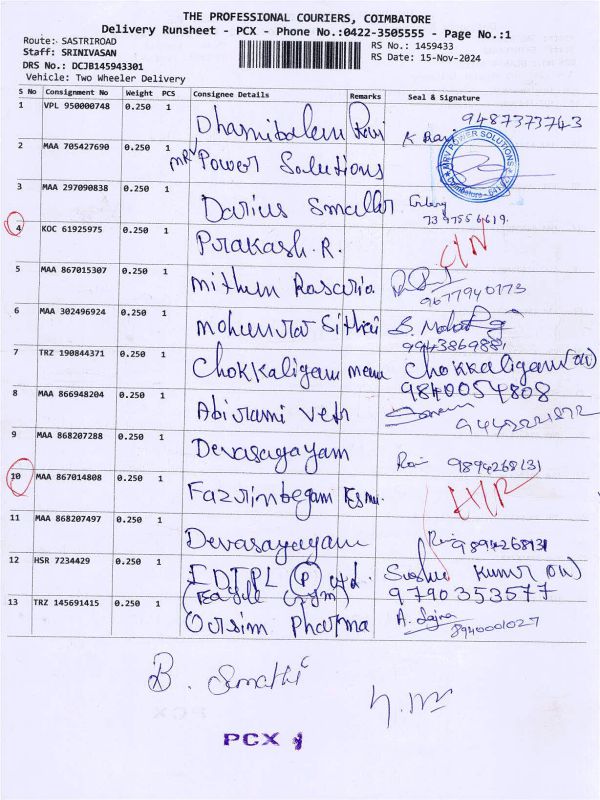 THE PROFESSIONAL COURIERS, COIMBATORE
Delivery Runsheet - PCX - Phone No.:0422-3505555 - Page No.:1
Route: SASTRIROAD
Staff: SRINIVASAN
RS No.: 1459433
DRS No.: DCJB145943301
RS Date: 15-Nov-2024
Vehicle: Two Wheeler Delivery
S No Consignment No Weight PCS Consignee Details Remarks Seal & Signature
1 VPL 950000748 0.250 1 Ravi 9487373743
K Ravi
2 MAA 705427690 0.250 1 MRV Power Solutions
MRV POWER SOLUTIONS
Coimbatore
3 MAA 297090838 0.250 1 Darius
4 KOC 61925975 0.250 1 Prakash.R.
5 MAA 867015307 0.250 1 Mithun Rosaria 9677940773
6 MAA 302496924 0.250 1 9943869881
7 TRZ 190844371 0.250 1 Chokkaligam Chokkaligam
9840054808
8 MAA 866948204 0.250 1 Abirami
9 MAA 868207288 0.250 1 Devasagayam Ravi 9894268131
10 MAA 867014808 0.250 1
11 MAA 868207497 0.250 1 Devasagayam 9894268131
12 HSR 7234429 0.250 1 IDTPL (P) Ltd. Kumar
9790353577
13 TRZ 145691415 0.250 1 Pharma 8940001027
PCX
PCX